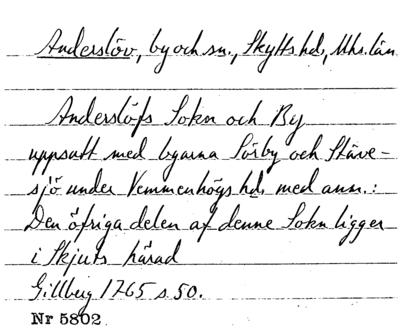 Anderslöv, by och sn., Skytts hd, Mhs. län
Anderslöfs Sokn och By
uppsatt med byarna Sörby och Stäve-
sjö under Vemmenhögs hd. med anm.:
Den öfriga delen af denne Sokn ligger
i Skjuts härad
Gillberg 1765 s 50.
Nr 5802